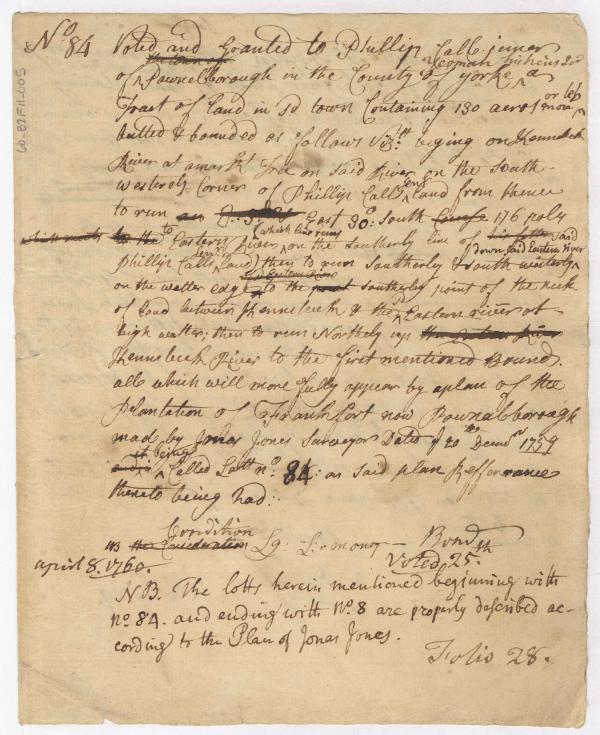 No 84 Voted and Granted to Phillip Call jener
of the town of Pownelborough in the County of Yorke Yeoman a
Tract of land in sd town Containing 130 acers more or less
butted & bounded as follows viz: beging on Kennebeck
River at a markt tree on said River on the South
westerly Corner of Phillip Calls land from thence
to run East 30°: South 176 poly
to the Eastern River which line runs on the southerly line of said
Phillip Calls land then to run Southerly & South westerly down said Eastern River
on the watter edge to the southerly point of the neck
of land between Kennebeck & the sd Eastern river at
high watter; then to run Northely up
Kennebeck River to the first mentioned Bound.
all which will more fully appear by a plan of the
Plantation of Frankfort now Pownalborough
made by Jonas Jones Surveyor Dated ye 20th Decmbr 1759
it being Called Lott no. 84: as said plan Refferrance
thereto being had:
Condition
the Consideration L: mony — Bond
april 8. 1760. Voted 25.th
NB. The lotts herein mentioned beginning with
no. 84. and ending with No. 8 are properly described ac-
cording to the Plan of Jonas Jones.
Folio 28.
60-82F11-005